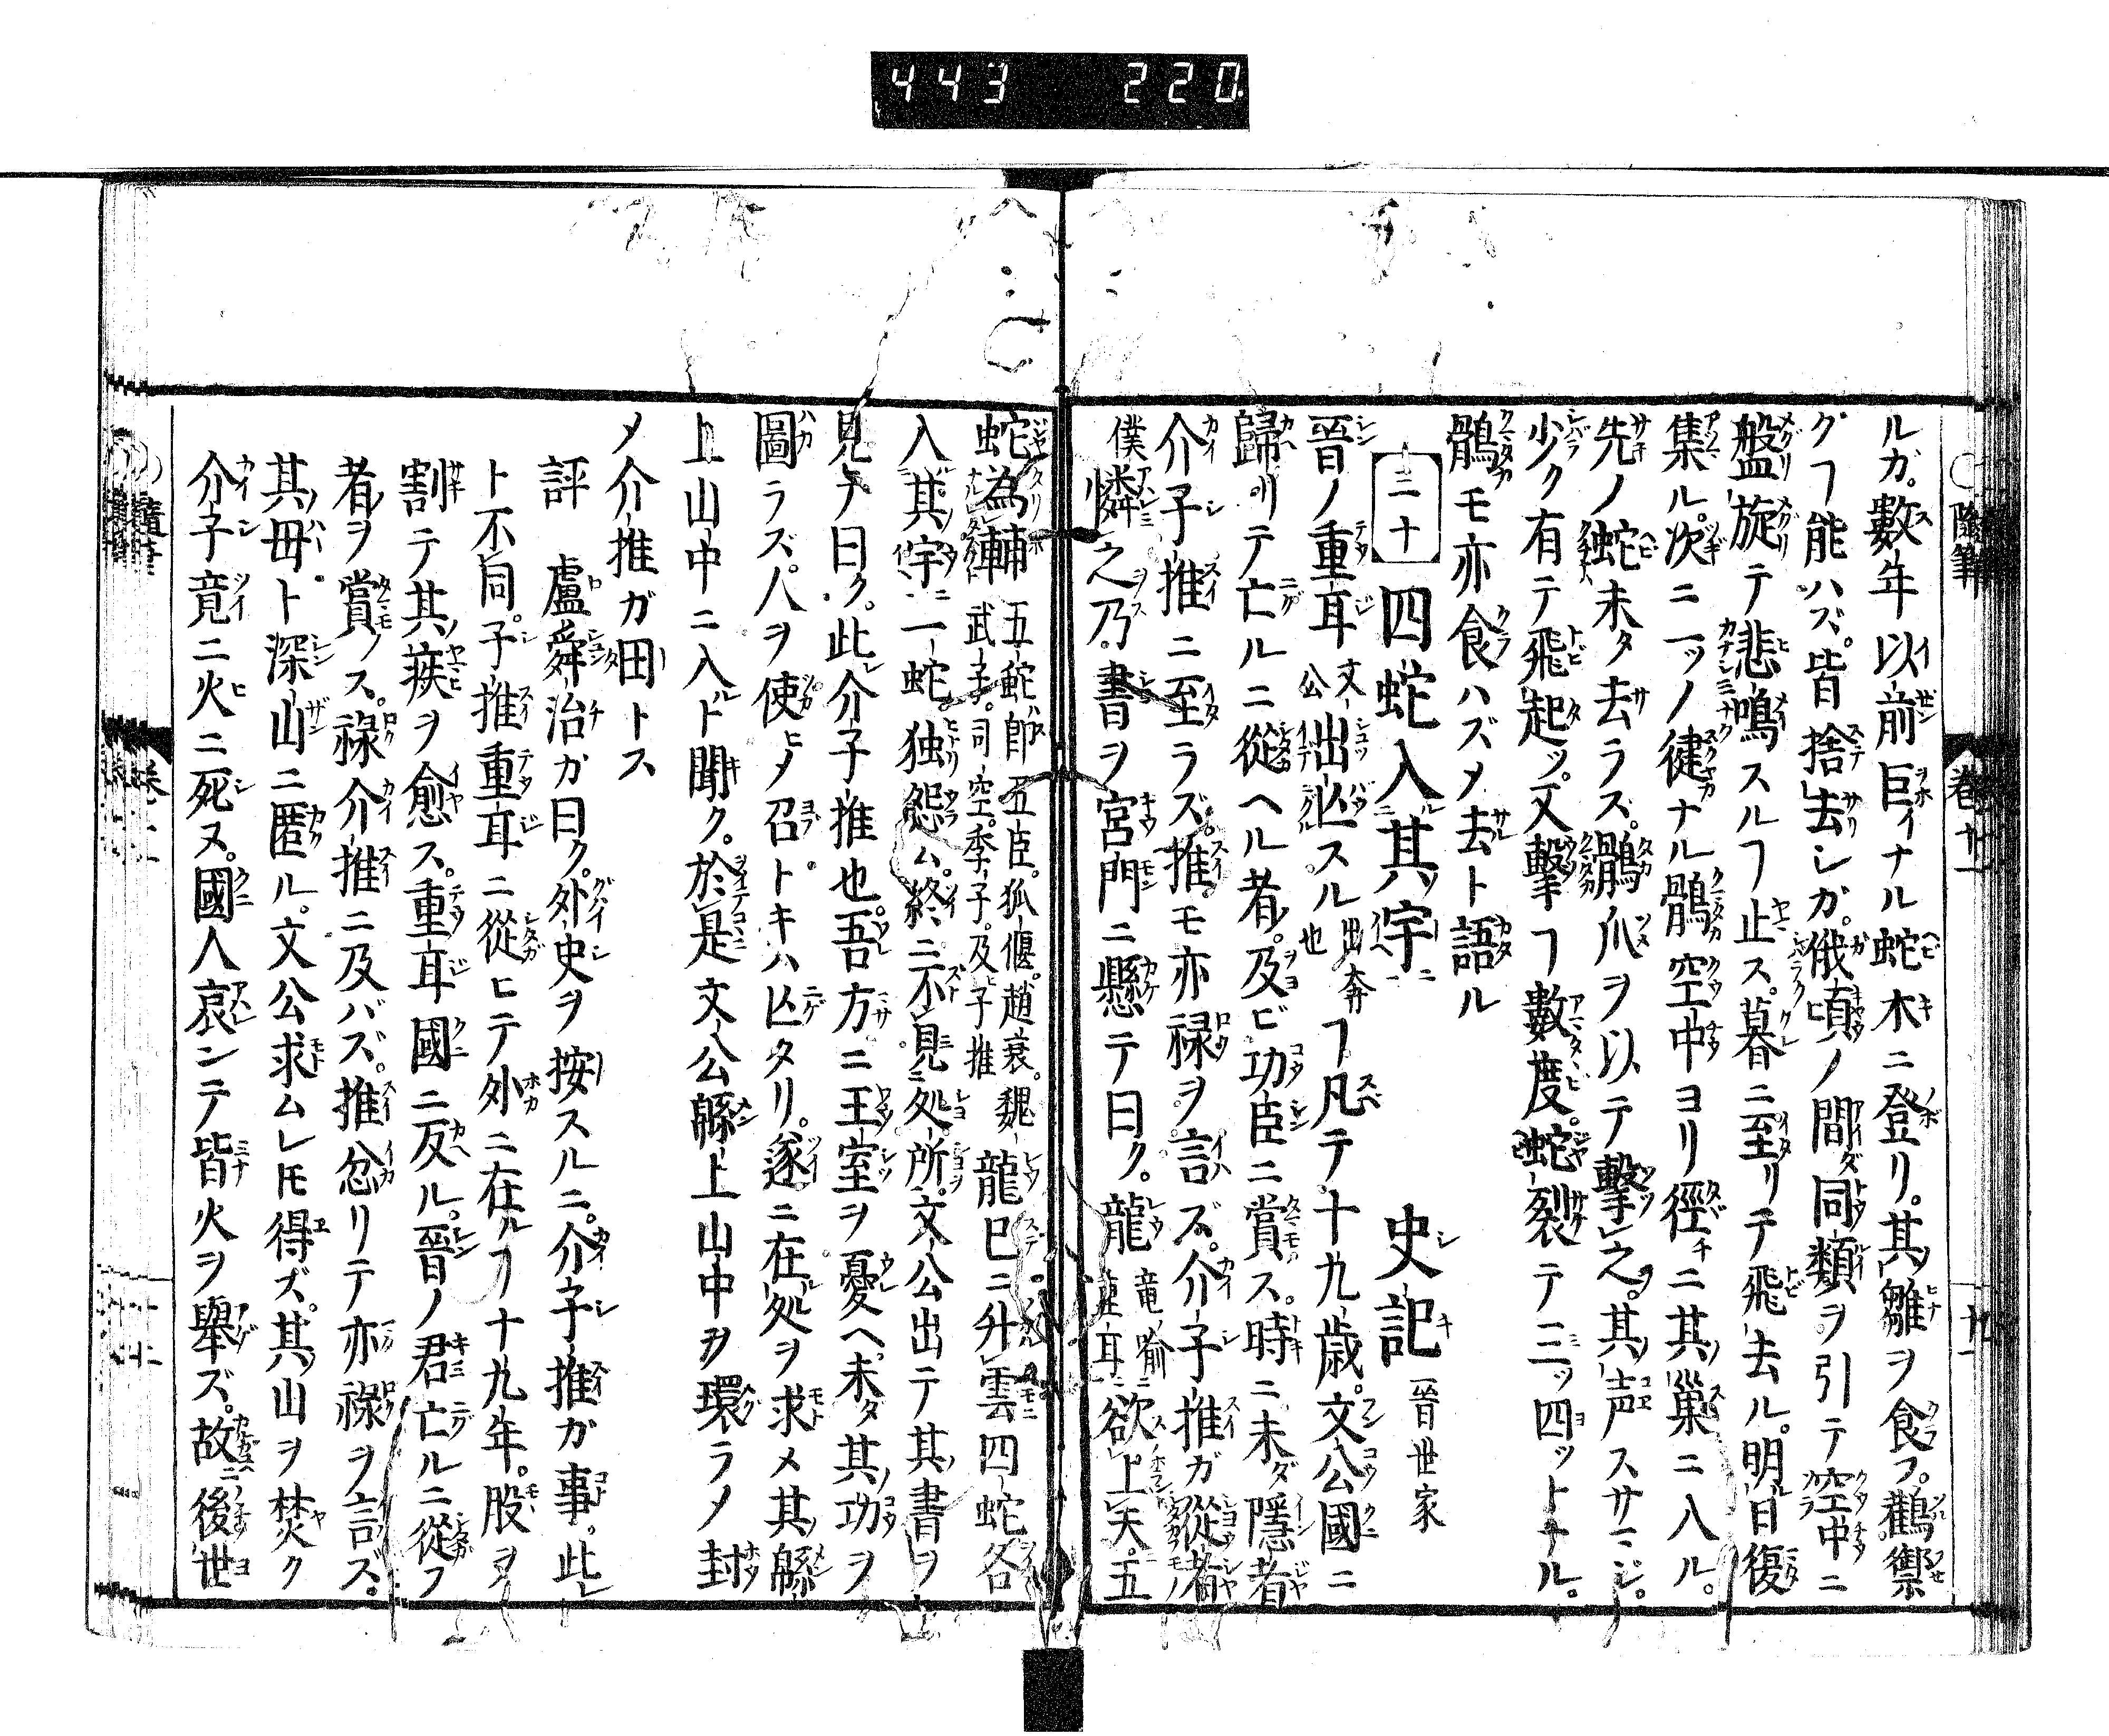 443 220
隨筆 卷廿一 十一
ルガ。數年以前巨ナル蛇木ニ登リ。其雛ヲ食フ。鸛禦
グヿ能ハズ。皆捨去シガ。俄頃ノ間ダ同類ヲ引テ空中ニ
盤旋テ悲鳴スルヿ止ス。暮ニ至リテ飛去ル。明日復
集ル。次ニ一ツノ健ナル鶻空中ヨリ徑チニ其巢ニ入ル。
先ノ蛇未タ去ラス。鶻爪ヲ以テ擊之。其声スサマジ。
少ク有テ飛起ツ。又擊ヿ數度。蛇裂テ三ツ四ツトナル。
鶻モ亦食ハズメ去ト語ル
三十 四蛇入其宇ニ 史記 晉世家
晉ノ重耳文公出亡スル出奔也ヿ凡テ。十九歳。文公國ニ
歸リテ亡ルニ從ヘル者。及ビ功臣ニ賞ス。時ニ未ダ隱者
介子推ニ至ラズ。推モ亦禄ヲ言ズ。介子推ガ從者
僕憐之乃書ヲ宮門ニ懸テ曰ク。龍竜ノ喻重耳ニ欲上天。五
蛇為輔五蛇即五臣。狐偃。趙衰。魏武子。司空季子。及子推龍已ニ升雲四蛇各
入其宇ニ一蛇。独怨ム。終ニ不見処所。文公出テ其書ヲ
見テ曰ク。此介子推也吾方ニ王室ヲ憂ヘ未タ其功ヲ
圖ラズ。人ヲ使ヒメ召トキハ亡タリ。遂ニ在処ヲ求メ其緜
上山中ニ入ルト聞ク。於是文公緜上山中ヲ環ラメ封
メ介推ガ田トス
評 盧舜治カ曰ク。外史ヲ按スルニ。介子推ガ事。此レ
ト不同。子推重耳ニ從ヒテ外ニ在ルヿ十九年。股ヲ
割テ其疾ヲ愈ス。重耳國ニ反ル。晉ノ君亡ルニ從フ
者ヲ賞ス。禄介推ニ及バズ。推忿リテ亦禄ヲ言ズ。
其母ト深山ニ匿ル。文公求ムレ𪜈得ズ。其山ヲ焚ク
介子竟ニ火ニ死ヌ。國人哀ンテ皆火ヲ舉ズ。故ニ後世